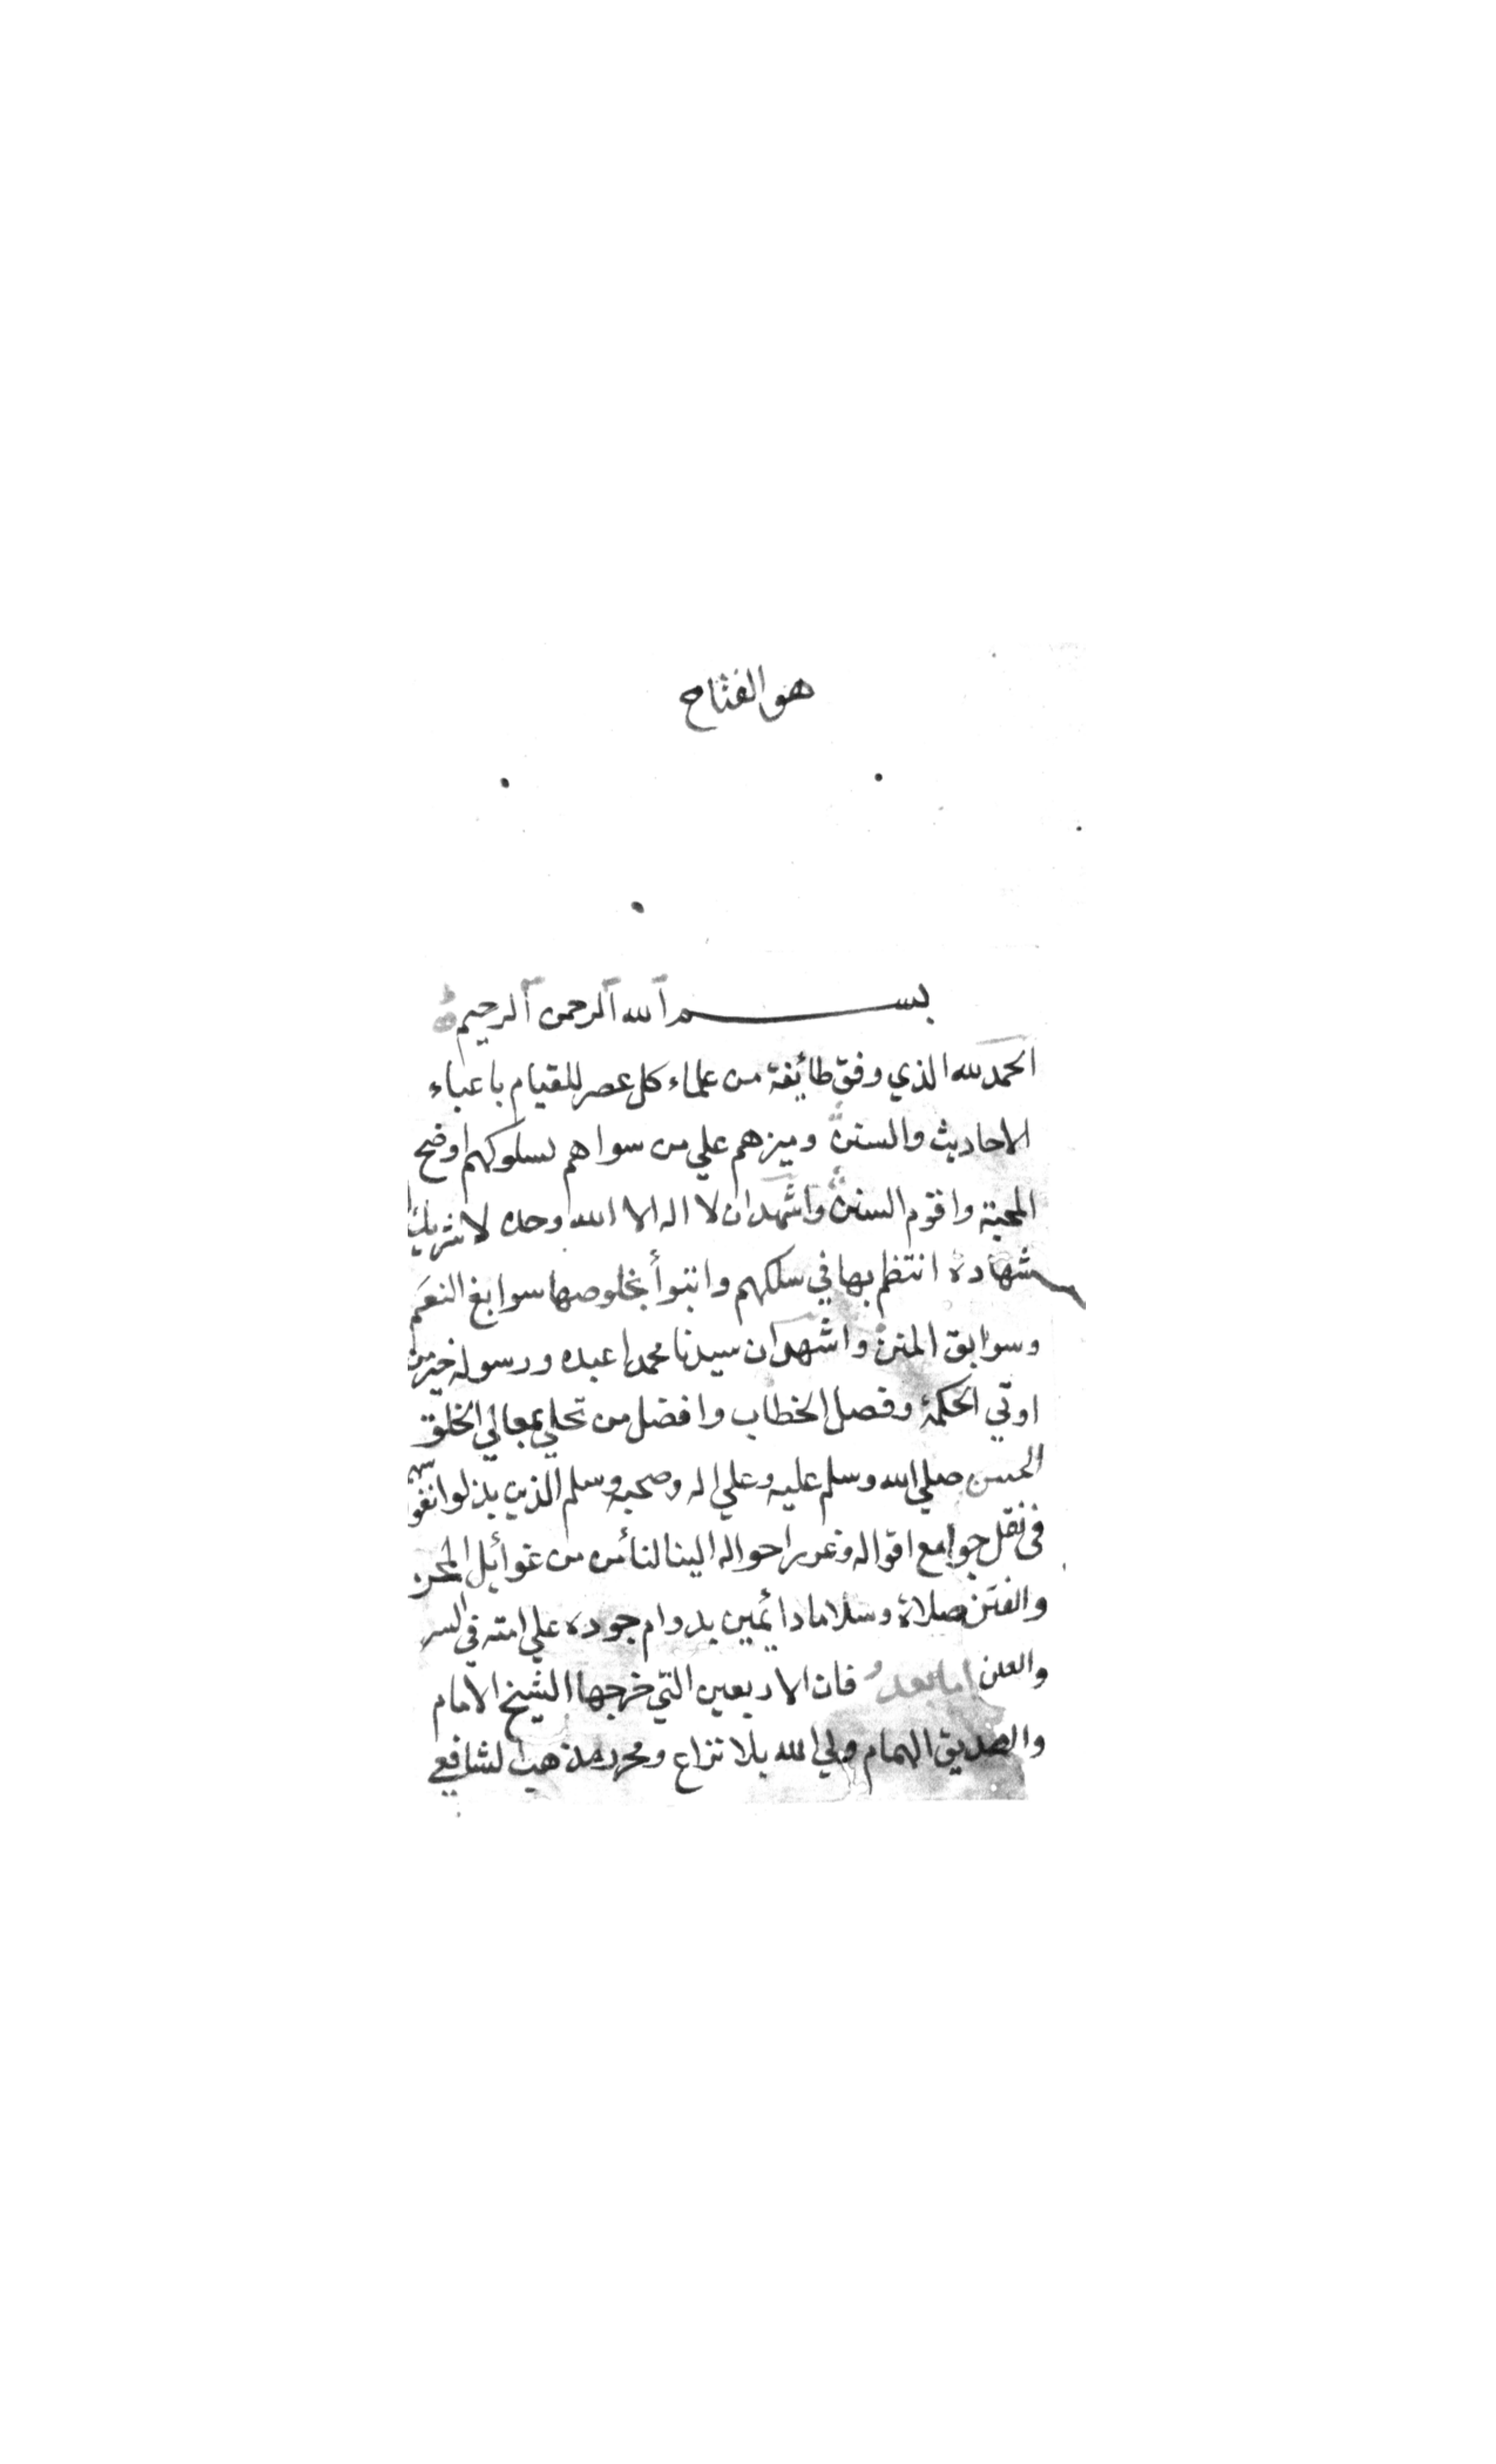 هو الفتاح
بسم الله الرحمن الرحيم
الحمد لله الذي وفق طائفة من علماء كل عصر للقيام باعباء
الاحاديث والسنن وميزهم علي من سواهم بسلوكهم اوضح
المحجة واقوم السنن واشهد ان لا اله الا الله وحده لا شريك
شهادة انتظم بها في سلكهم واتبوأ بخلوصها سوابغ النعم
وسوابق المنن واشهد ان سيدنا محمدا عبده ورسوله خير من
اوتي الحكمة وفصل الخطاب وافضل من تحلي بمعالي الخلق
الحسن صلي الله وسلم عليه وعلي اله وصحبه وسلم الذين بذلوا نفوسهم
في نقل جوامع اقواله وغرر احواله الينا لنأمن من غوائل المحن
والفتن صلاة وسلاما دائمين بدوام جوده علي امته في السر
والعلن اما بعد فان الاربعين التي خرجها الشيخ الامام
والصديق الهمام ولي الله بلا نزاع ومحرر مذهب الشافعي